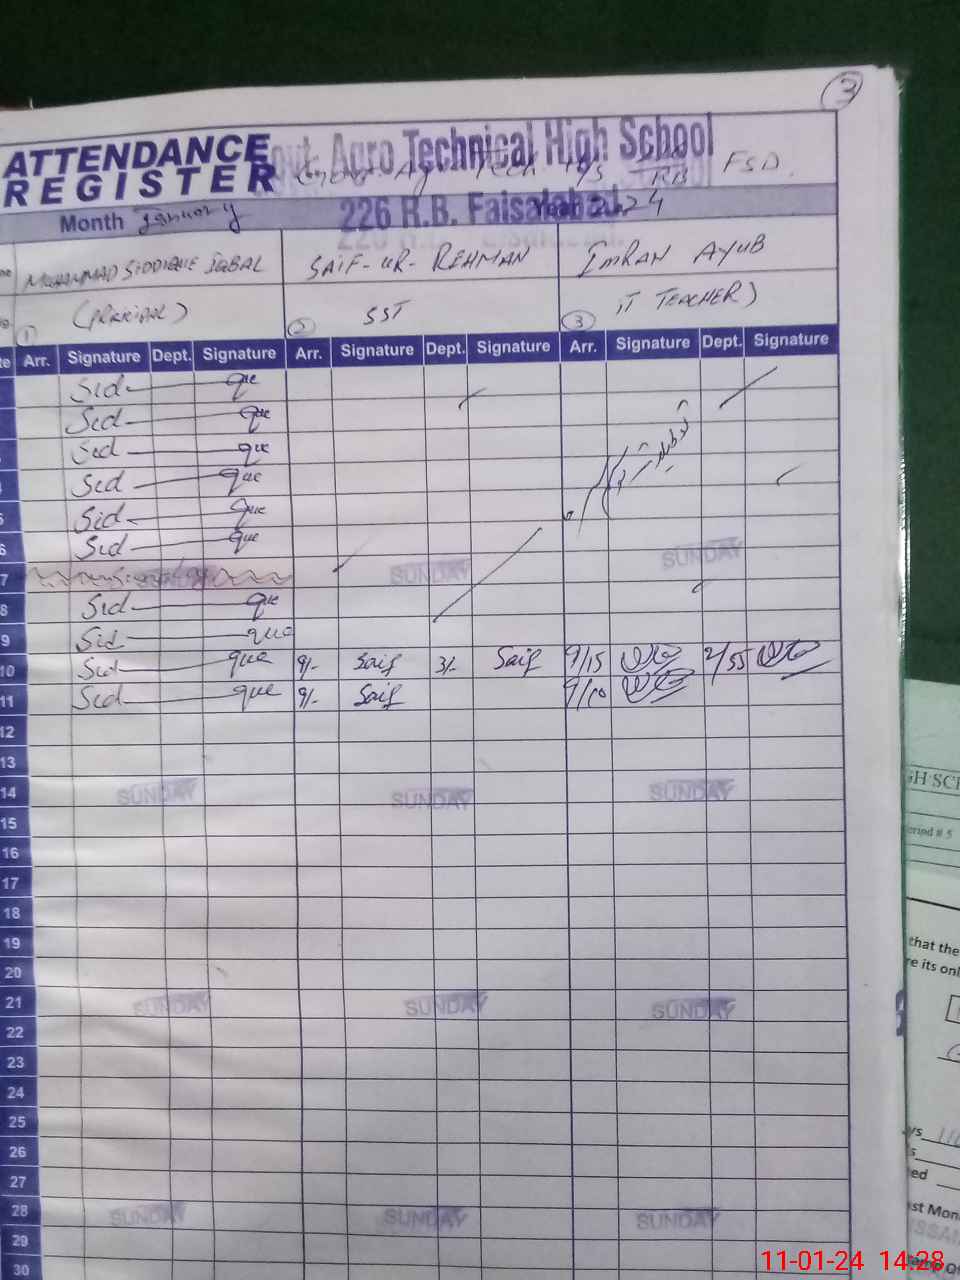 3
ATTENDANCE
REGISTER
Govt. Agro Technical High School
Govt. Ag Tech H/S RB FSD.
226 R.B. Faisalabad.
Month January 2024
MUHAMMAD SIDDIQUE IQBAL SAIF-UR-REHMAN IMRAN AYUB
(PRINCIPAL) SST IT TEACHER)
1 2 3
te Arr. Signature Dept. Signature Arr. Signature Dept. Signature Arr. Signature Dept. Signature
Sid que
Sid que
Sid que
Sid que
5 Sid que
6 Sid que
7 SUNDAY SUNDAY
8 Sid que
9 Sid que
10 Sid que 9/- Saif 3/- Saif 9/15 2/55
11 Sid que 9/- Saif 9/10
12
13
14 SUNDAY SUNDAY SUNDAY
15
16
17
18
19
20
21 SUNDAY SUNDAY SUNDAY
22
23
24
25
26
27
28 SUNDAY SUNDAY SUNDAY
29
30
GH SCH
eriod # 5
that the
re its onl
ys
s
ed
st Mon
11-01-24 14:28